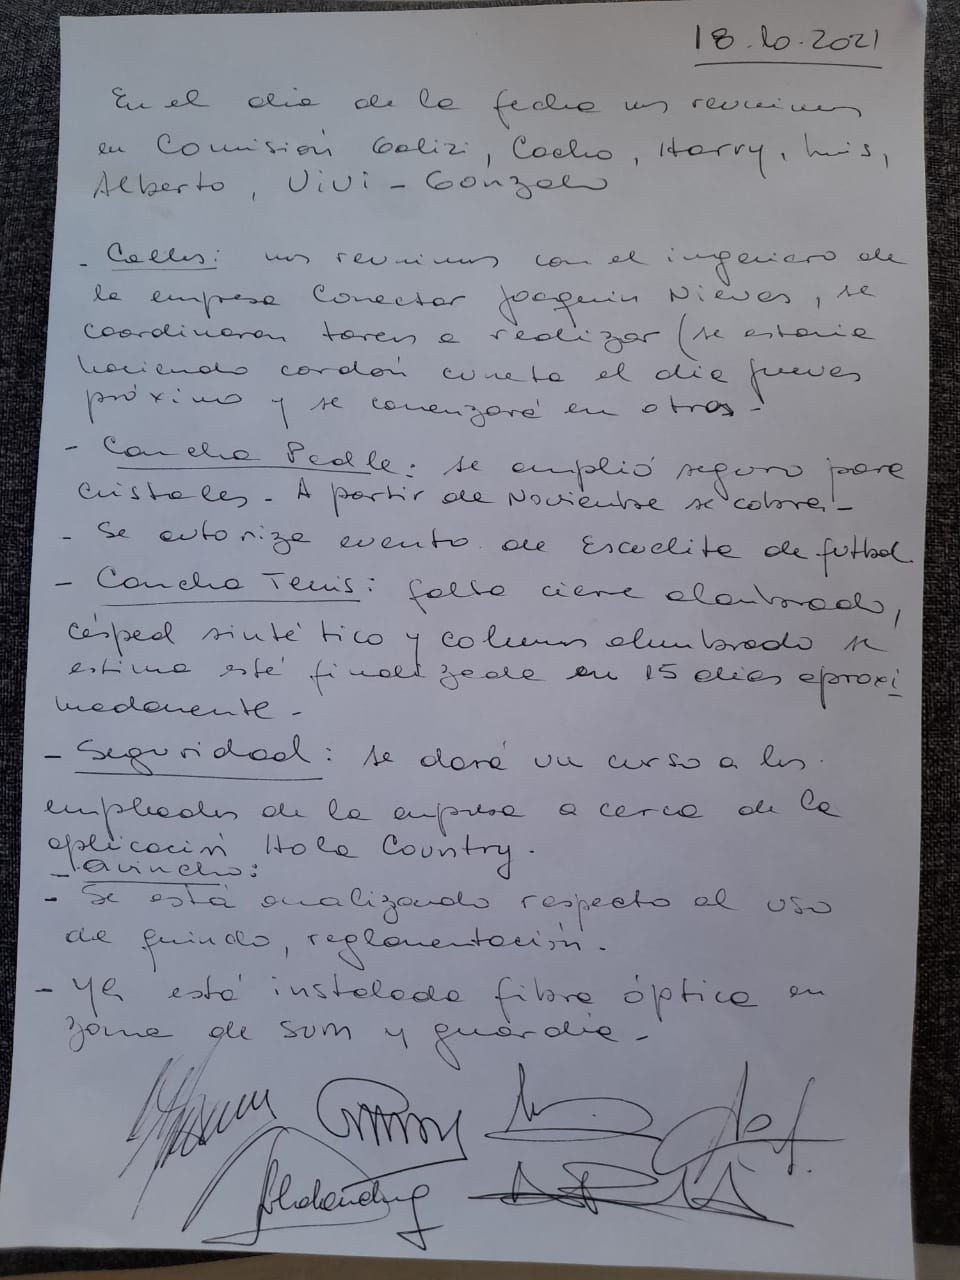 18.10.2021
En el dia de la fecha nos reunimos
en Comisión Galizi, Cacho, Harry, Luis,
Alberto, Vivi - Gonzalo
- Calles: nos reunimos con el ingeniero de
la empresa Conectar Joaquin Nieves, se
coordinaron tareas a realizar (se estaria
haciendo cordón cuneta el dia jueves
próximo y se comenzará en otras -
- Cancha Padle: se amplió seguro para
cristales - A partir de Noviembre se cobra -
- Se autoriza evento de Escuelita de futbol
- Cancha Tenis: falta cierre alambrado,
césped sintético y columnas alumbrado se
estima esté finalizada en 15 dias aproxi
madamente -
- Seguridad: se dará un curso a los
empleados de la empresa a cerca de la
aplicación Hola Country.
- Quincho:
- Se está analizando respecto al uso
de quincho, reglamentación.
- Ya está instalada fibra óptica en
zona de SUM y guardia -